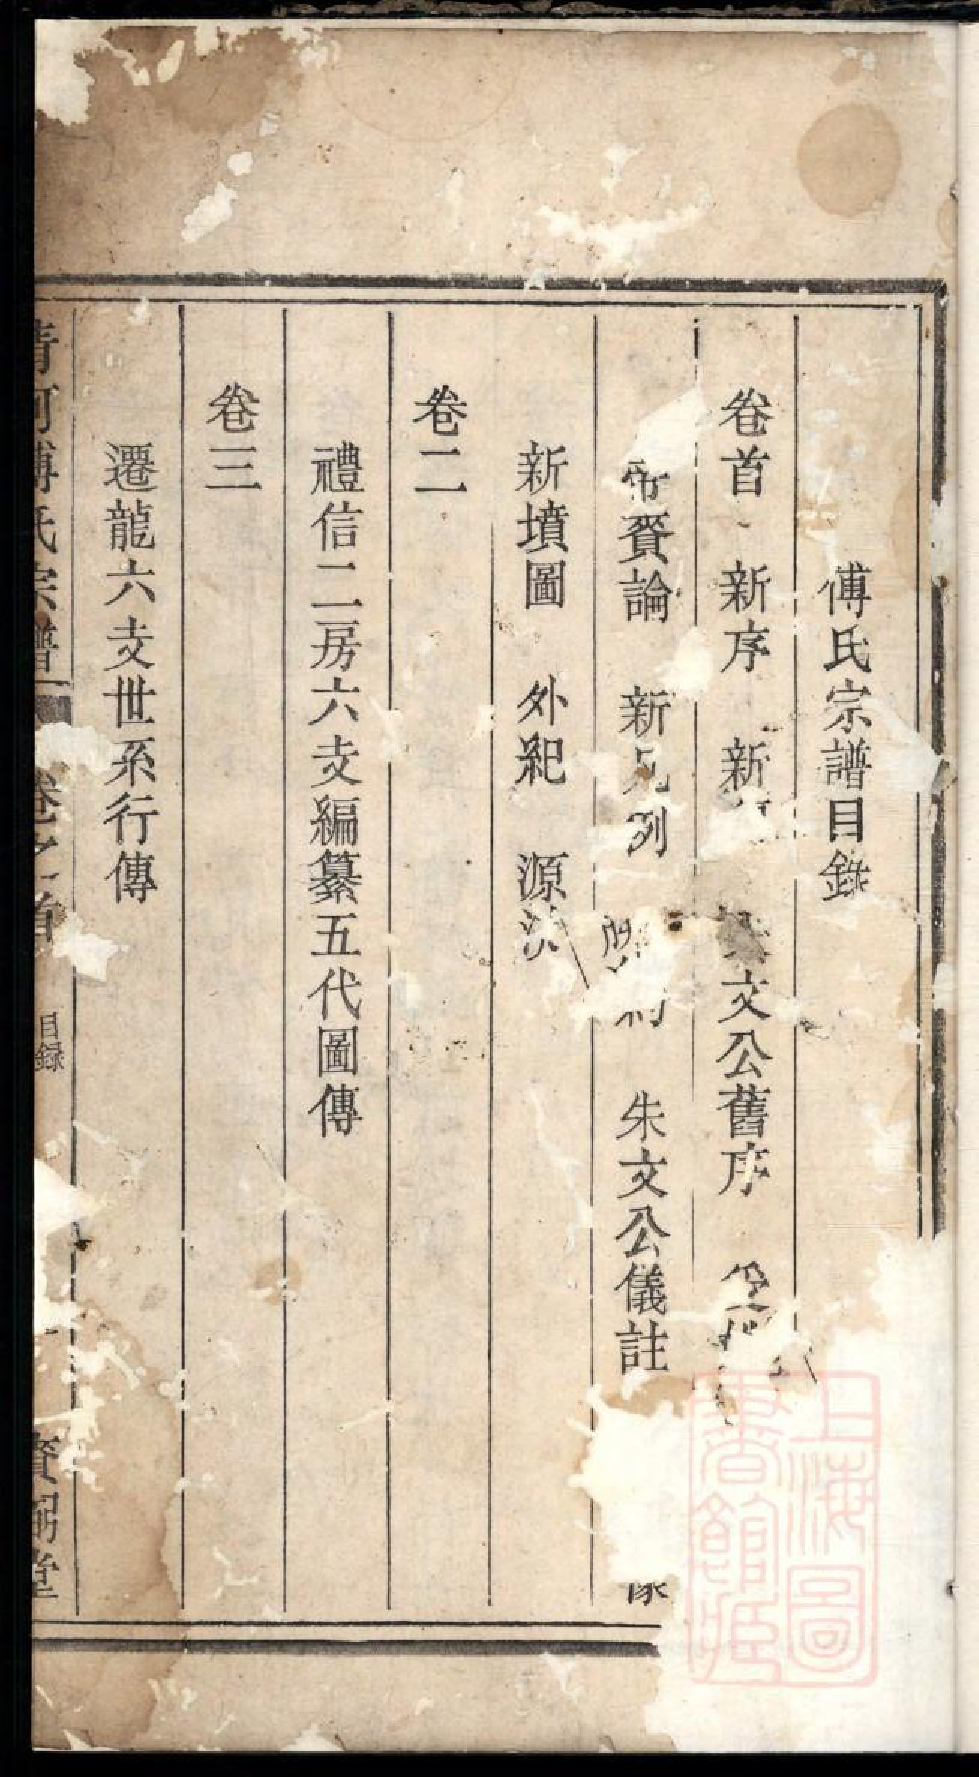 傅氏宗譜目錄
卷首 新序 新 文公舊序
帝賚論 新凡例 朱文公儀註 像
新墳圖 外紀 源流
卷二
禮信二房六支編纂五代圖傳
卷三
遷龍六支世系行傳
清河傅氏宗譜 卷之首 目錄 賚弼堂
上海圖書館藏